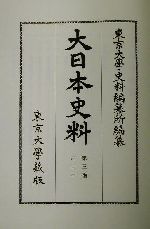 東京大學史料編纂所編纂
大日本史料
東京大學藏版